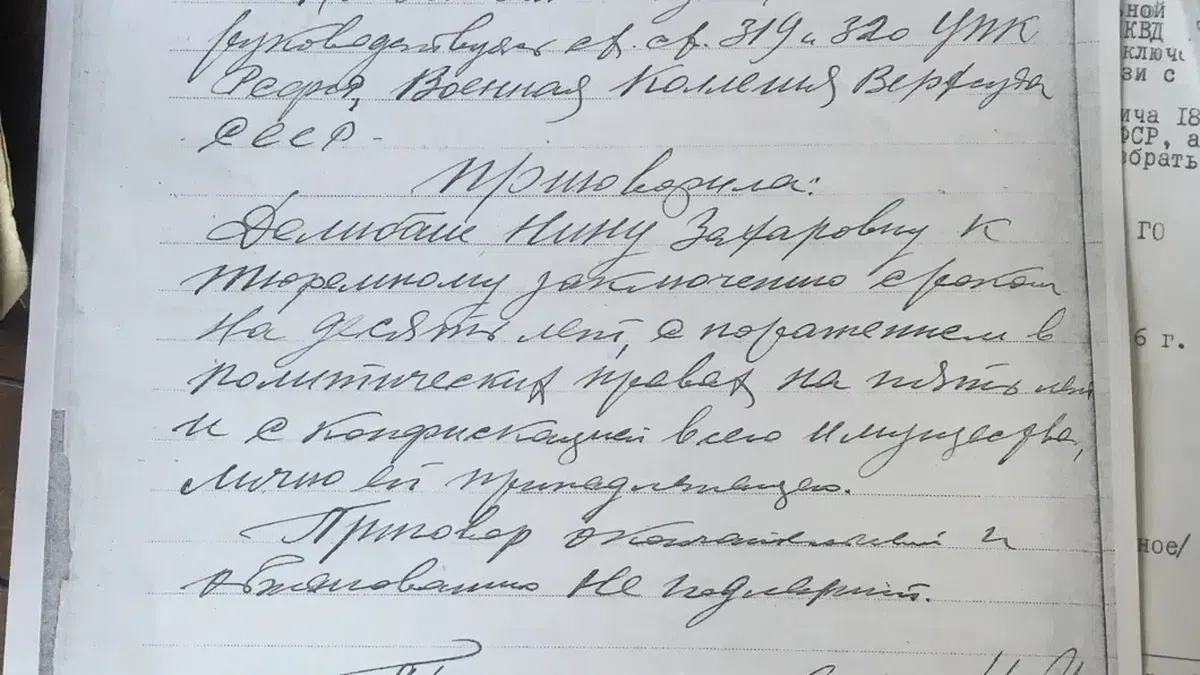 руководствуясь ст. ст. 319 и 320 УПК
РСФСР, Военная Коллегия Верхсуда
СССР -
Приговорила:
Делибаш Нину Захаровну к
тюремному заключению сроком
на десять лет, с поражением в
политических правах на пять лет
и с конфискацией всего имущества,
лично ей принадлежащего.
Приговор окончательный и
обжалованию не подлежит.
ной
КВД
ключ
зи с
ича 18
ФСР, а
збрать
ГО
6 г.
ное/